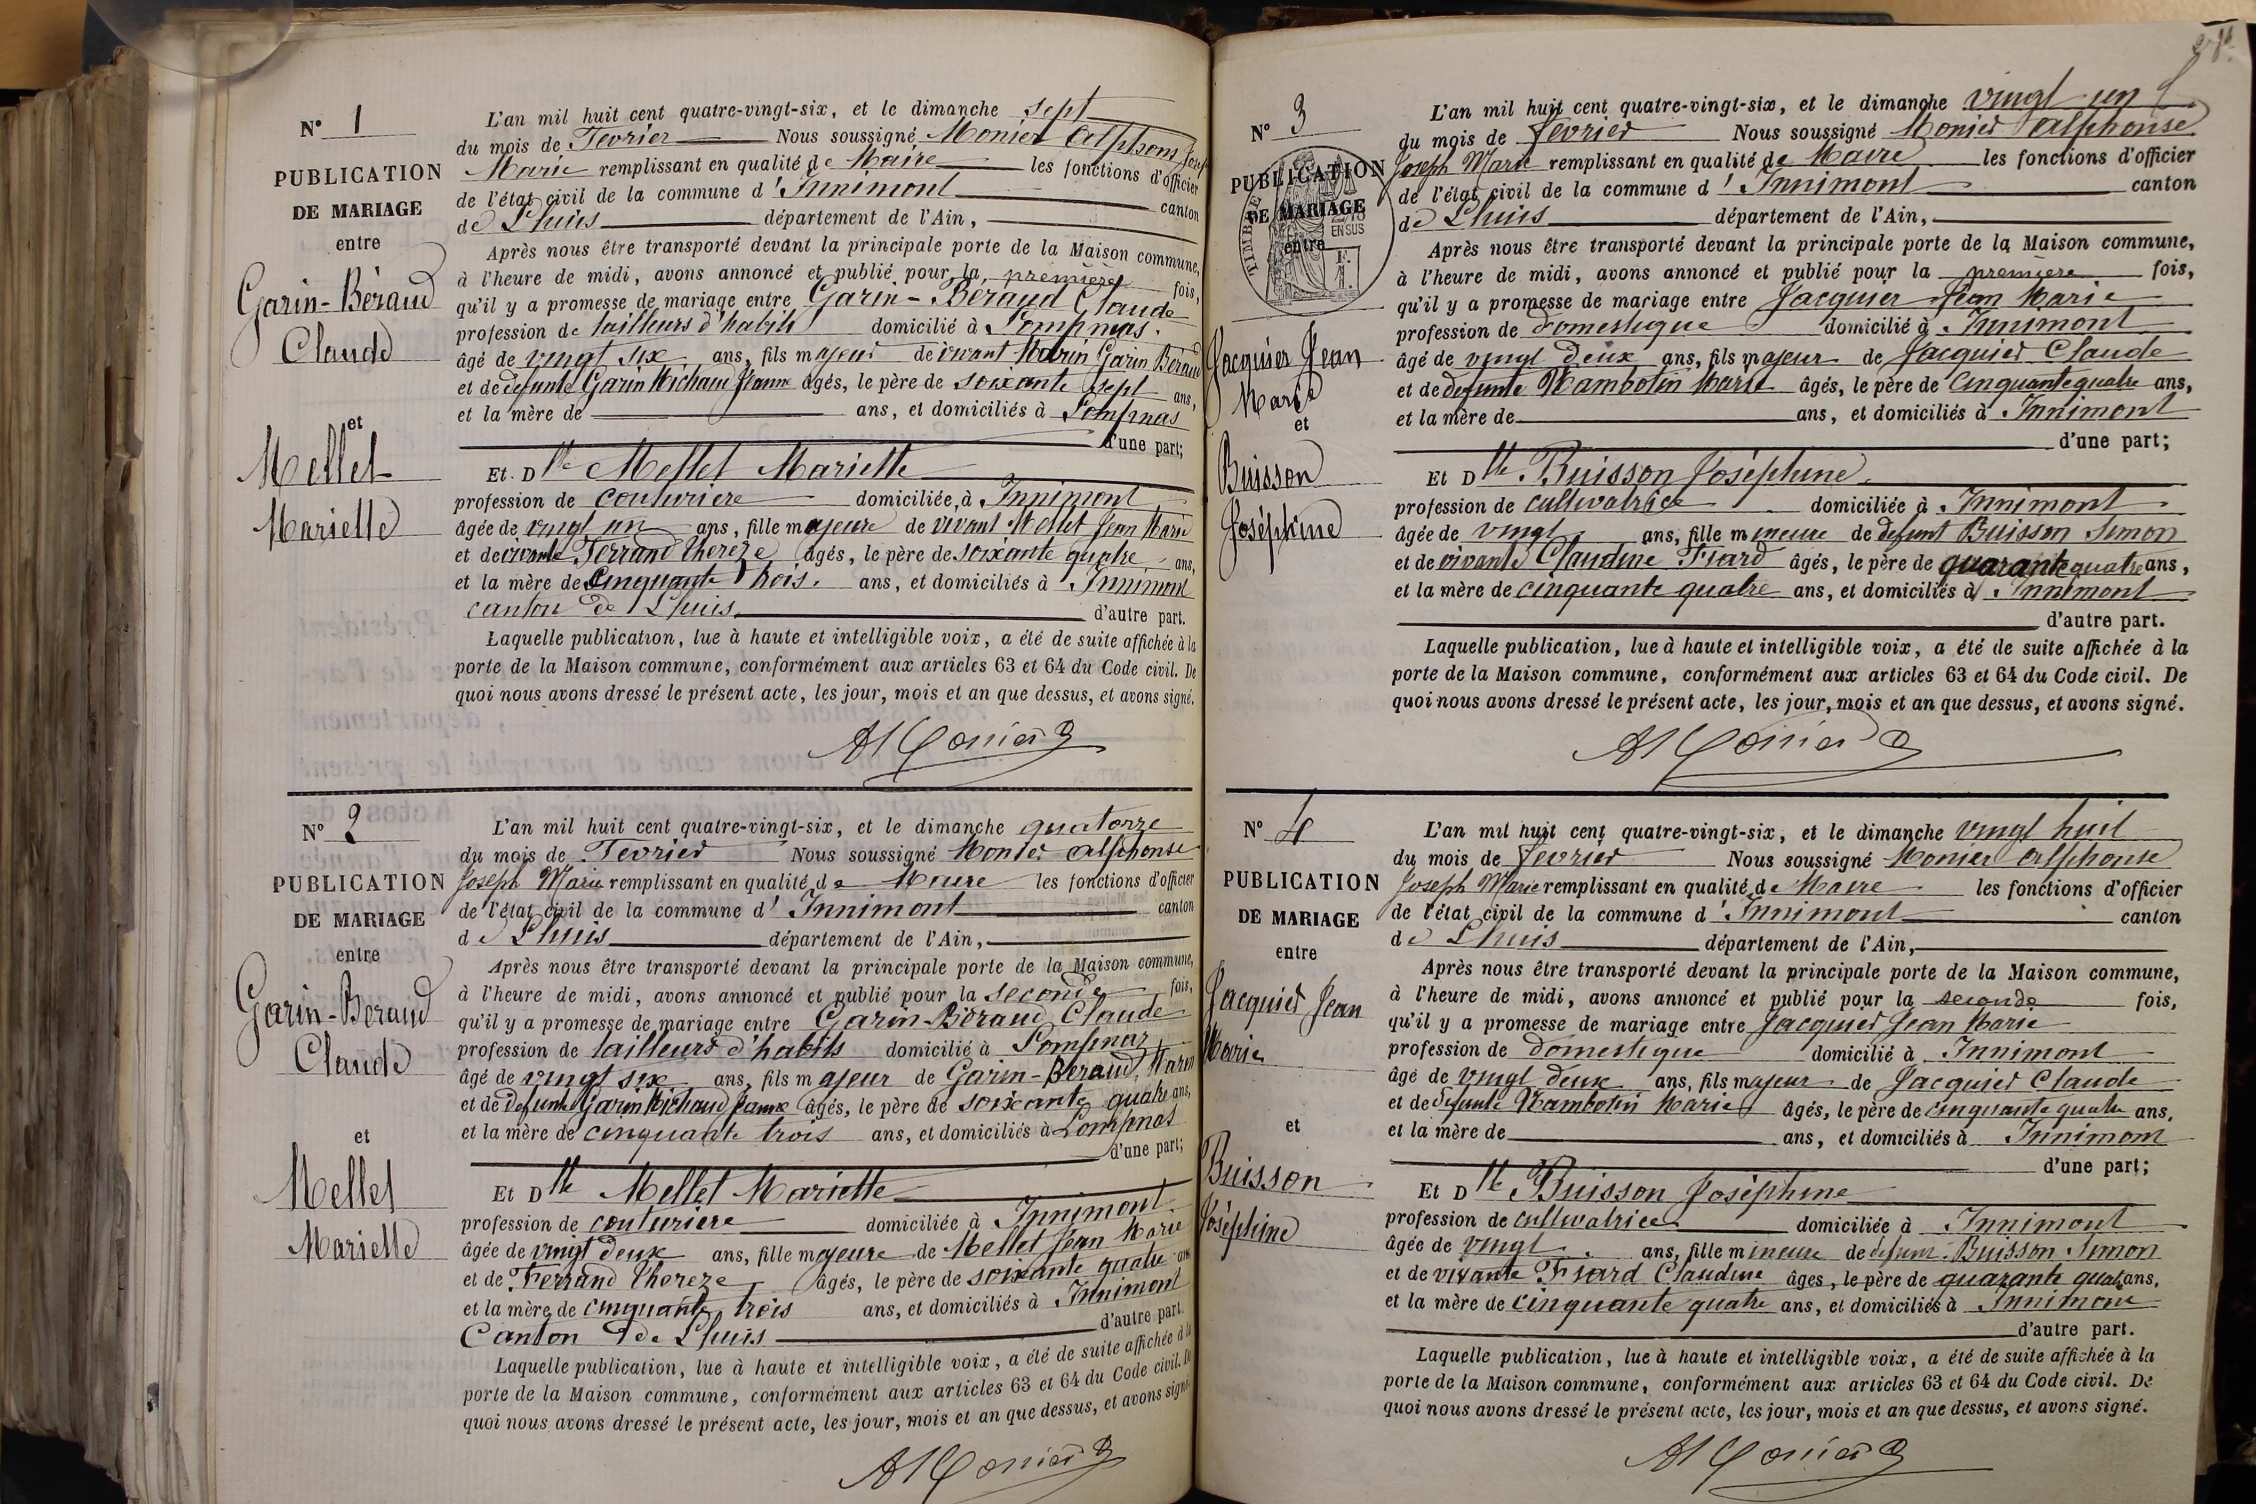 N° 1
PUBLICATION
DE MARIAGE
entre
Garin-Béraud
Claude
et
Mellet
Mariette
L'an mil huit cent quatre-vingt-six, et le dimanche sept
du mois de Fevrier Nous soussigné Monier Alphons Joseph
Marie remplissant en qualité de Maire les fonctions d'officier
de l'état civil de la commune d' Innimont canton
de Lhuis département de l'Ain,
Après nous être transporté devant la principale porte de la Maison commune,
à l'heure de midi, avons annoncé et publié pour la première fois,
qu'il y a promesse de mariage entre Garin-Béraud Claude
profession de tailleurs d'habits domicilié à Lompnas.
âgé de vingt six ans, fils majeur de vivant Marin Garin Béraud
et de defunte Garin Michaud Jeanne âgés, le père de soixante sept ans,
et la mère de ans, et domiciliés à Lompnas
d'une part;
Et Dlle Mellet Mariette
profession de couturiere domiciliée à Innimont
âgée de vingt un ans, fille majeure de vivant Mellet Jean Marie
et de vivante Ferrand Thereze âgés, le père de soixante quatre ans,
et la mère de cinquante trois. ans, et domiciliés à Innimont
canton de Lhuis d'autre part.
Laquelle publication, lue à haute et intelligible voix, a été de suite affichée à la
porte de la Maison commune, conformément aux articles 63 et 64 du Code civil. De
quoi nous avons dressé le présent acte, les jour, mois et an que dessus, et avons signé.
A Monier
N° 2
PUBLICATION
DE MARIAGE
entre
Garin-Beraud
Claude
et
Mellet
Mariette
L'an mil huit cent quatre-vingt-six, et le dimanche quatorze
du mois de Fevrier Nous soussigné Monier Alphonse
Joseph Marie remplissant en qualité de Maire les fonctions d'officier
de l'état civil de la commune d' Innimont canton
de Lhuis département de l'Ain,
Après nous être transporté devant la principale porte de la Maison commune,
à l'heure de midi, avons annoncé et publié pour la seconde fois,
qu'il y a promesse de mariage entre Garin-Béraud Claude
profession de tailleurs d'habits domicilié à Lompnas
âgé de vingt six ans, fils majeur de Garin-Beraud Marin
et de defunte Garin Michaud Jeanne âgés, le père de soixante quatre ans,
et la mère de cinquante trois ans, et domiciliés à Lompnas
d'une part;
Et Dlle Mellet Mariette
profession de couturiere domiciliée à Innimont
âgée de vingt deux ans, fille majeure de Mellet Jean Marie
et de Ferrand Thereze âgés, le père de soixante quatre ans
et la mère de cinquante trois ans, et domiciliés à Innimont
Canton de Lhuis d'autre part.
Laquelle publication, lue à haute et intelligible voix, a été de suite affichée à la
porte de la Maison commune, conformément aux articles 63 et 64 du Code civil. De
quoi nous avons dressé le présent acte, les jour, mois et an que dessus, et avons signé.
A Monier
N° 3
PUBLICATION
DE MARIAGE
entre
TIMBRE
2/10
EN SUS
Jacquier Jean
Marie
et
Buisson
Joséphine
L'an mil huit cent quatre-vingt-six, et le dimanche vingt un
du mois de fevrier Nous soussigné Monier Alphonse
Joseph Marie remplissant en qualité de Maire les fonctions d'officier
de l'état civil de la commune d' Innimont canton
de Lhuis département de l'Ain,
Après nous être transporté devant la principale porte de la Maison commune,
à l'heure de midi, avons annoncé et publié pour la première fois,
qu'il y a promesse de mariage entre Jacquier Jean Marie
profession de domestique domicilié à Innimont
âgé de vingt deux ans, fils majeur de Jacquier Claude
et de defunte Mambotin Marie âgés, le père de cinquante quatre ans,
et la mère de ans, et domiciliés à Innimont
d'une part;
Et Dlle Buisson Joséphine
profession de cultivatrice domiciliée à Innimont
âgée de vingt ans, fille mineure de defunt Buisson Simon
et de vivante Claudine Fiard âgés, le père de quarante quatre ans,
et la mère de cinquante quatre ans, et domiciliés à Innimont
d'autre part.
Laquelle publication, lue à haute et intelligible voix, a été de suite affichée à la
porte de la Maison commune, conformément aux articles 63 et 64 du Code civil. De
quoi nous avons dressé le présent acte, les jour, mois et an que dessus, et avons signé.
A Monier
N° 4
PUBLICATION
DE MARIAGE
entre
Jacquier Jean
Marie
et
Buisson
Joséphine
L'an mil huit cent quatre-vingt-six, et le dimanche vingt huit
du mois de fevrier Nous soussigné Monier Alphonse
Joseph Marie remplissant en qualité de Maire les fonctions d'officier
de l'état civil de la commune d' Innimont canton
de Lhuis département de l'Ain,
Après nous être transporté devant la principale porte de la Maison commune,
à l'heure de midi, avons annoncé et publié pour la seconde fois,
qu'il y a promesse de mariage entre Jacquier Jean Marie
profession de domestique domicilié à Innimont
âgé de vingt deux ans, fils majeur de Jacquier Claude
et de defunte Mambotin Marie âgés, le père de cinquante quatre ans,
et la mère de ans, et domiciliés à Innimont
d'une part;
Et Dlle Buisson Joséphine
profession de cultivatrice domiciliée à Innimont
âgée de vingt. ans, fille mineure de defunt Buisson Simon
et de vivante Fiard Claudine âgés, le père de quarante quatre ans,
et la mère de cinquante quatre ans, et domiciliés à Innimont
d'autre part.
Laquelle publication, lue à haute et intelligible voix, a été de suite affichée à la
porte de la Maison commune, conformément aux articles 63 et 64 du Code civil. De
quoi nous avons dressé le présent acte, les jour, mois et an que dessus, et avons signé.
A Monier